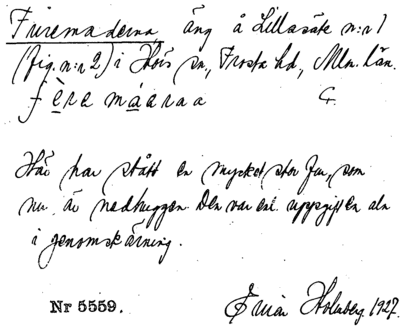 Furemaderna, äng å Lillasäte n:r 1
(fig. n:r 2) i Hörs sn, Frosta hd, Mlm. län.
fèremáarna
Här har stått en mycket stor fur, som
nu är nedhuggen. Den var enl. uppgift en aln
i genomskärning.
Nr 5559. Holmberg 1927.